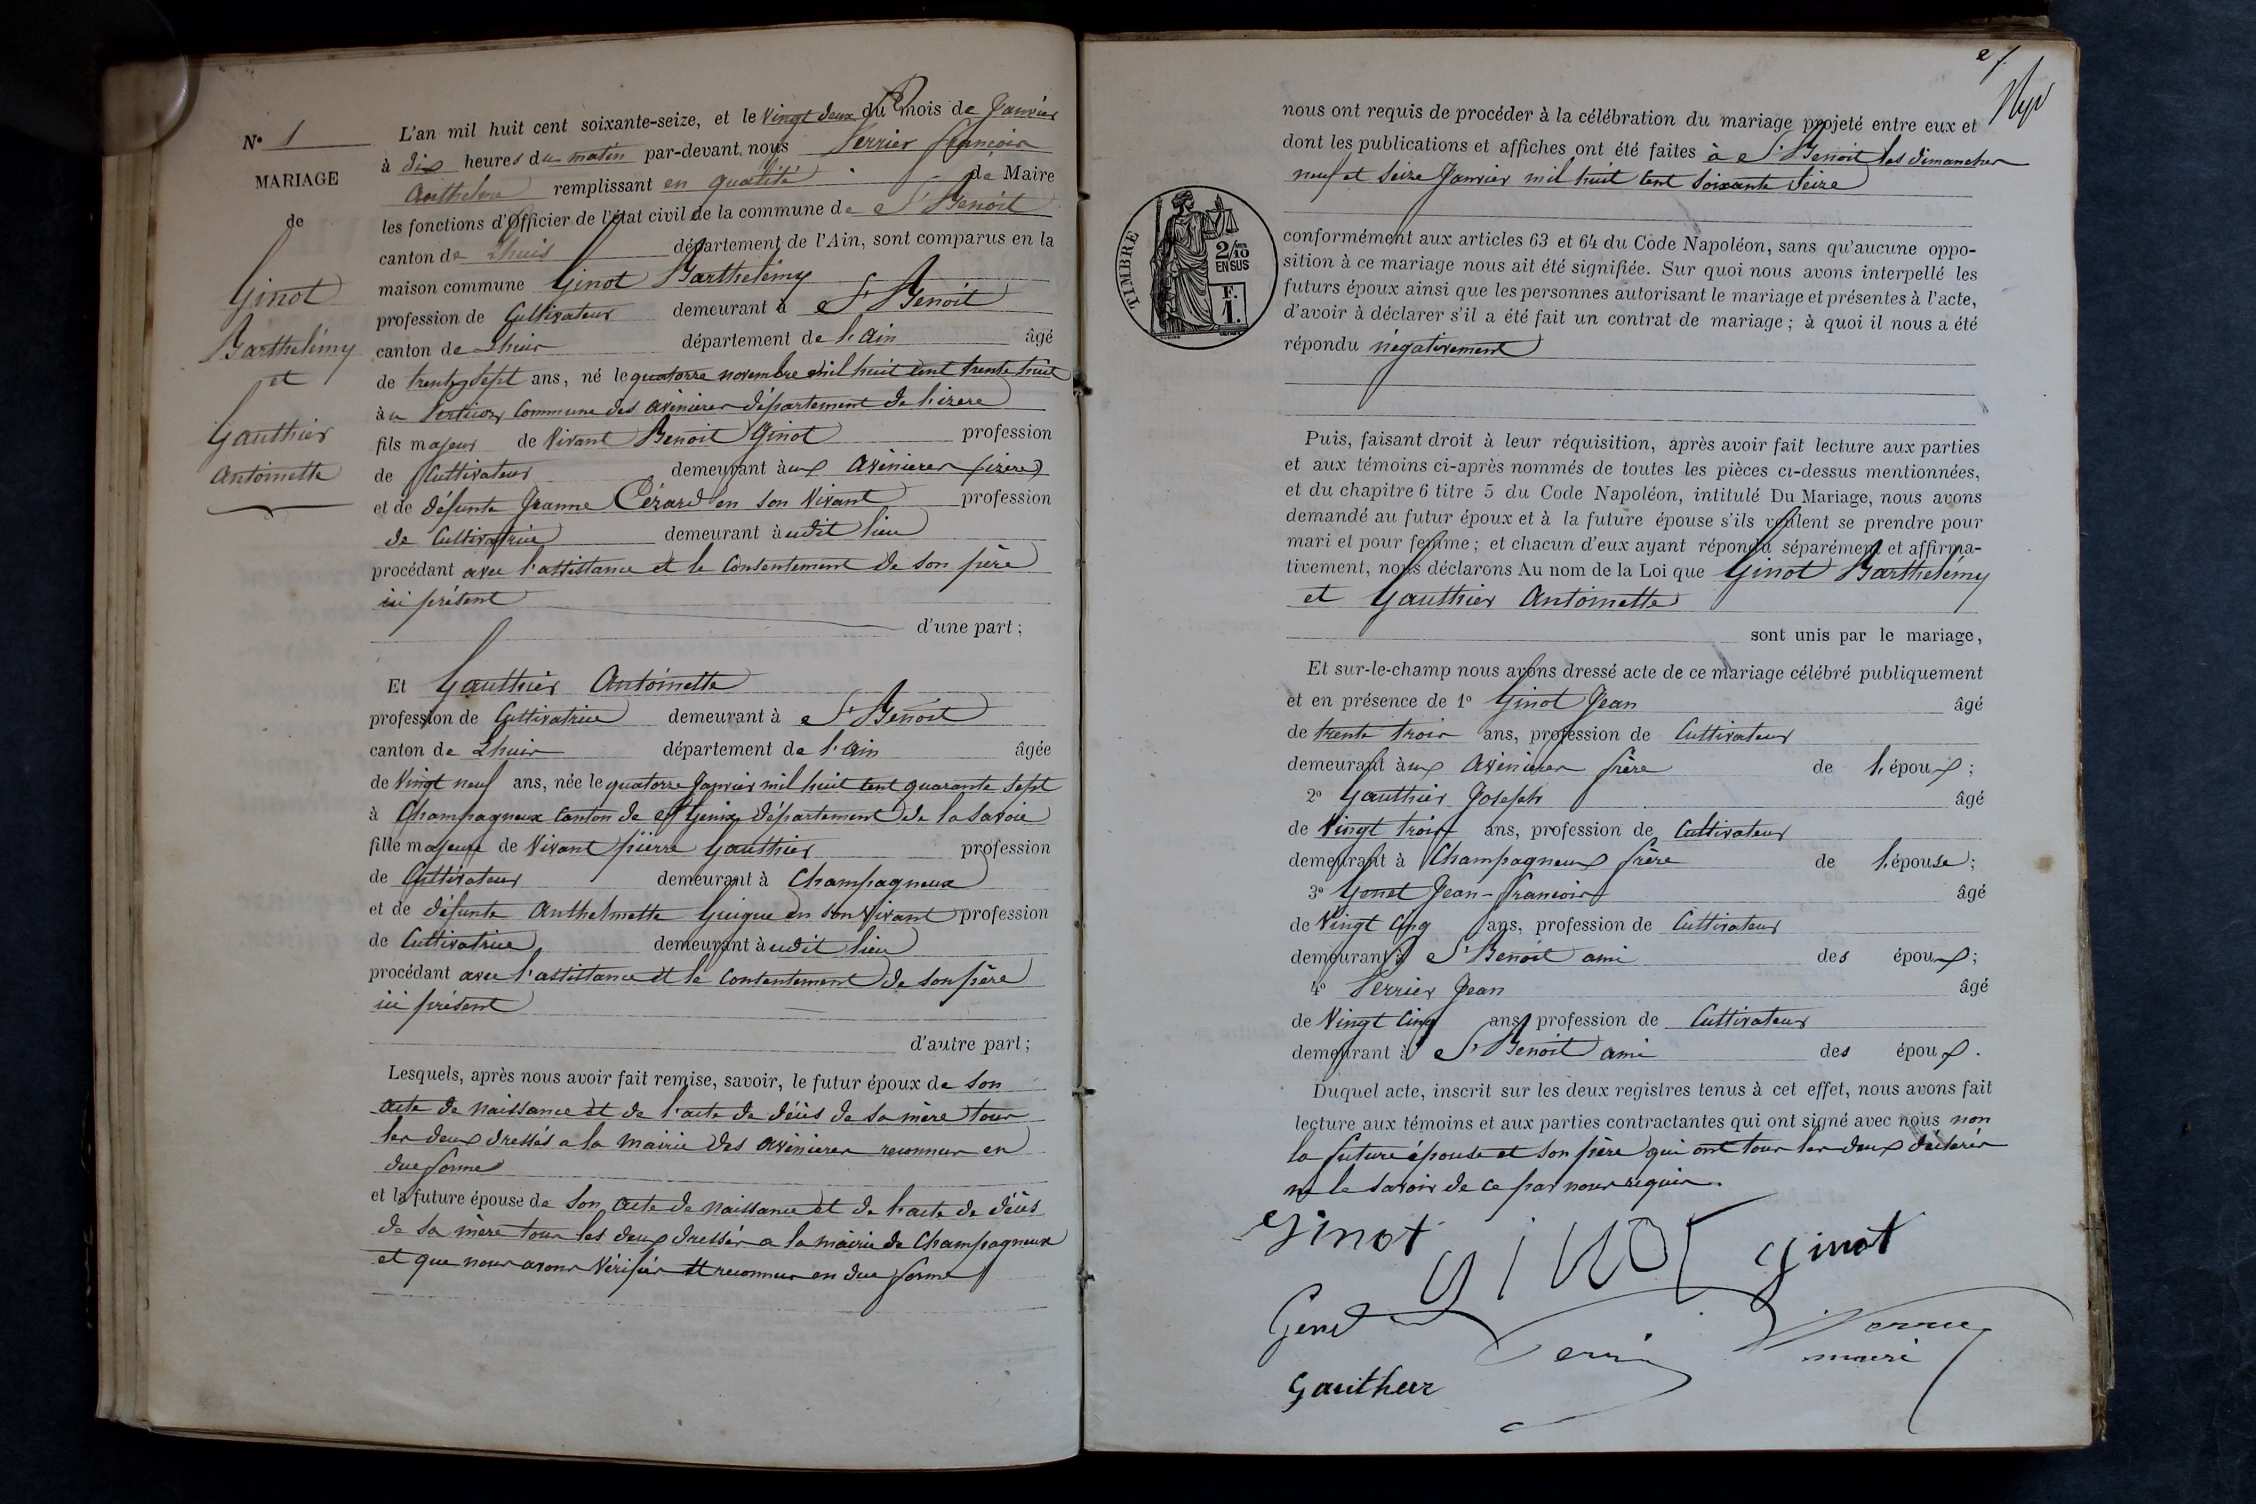 N° 1
MARIAGE
de
Ginot
Barthelémy
et
Gauthier
Antoinette
L'an mil huit cent soixante-seize, et le vingt deux du mois de Janvier
à dix heures du matin par-devant nous Verrier françois
Anthelme remplissant en qualité de Maire
les fonctions d'Officier de l'état civil de la commune de St Benoit
canton de Lhuis département de l'Ain, sont comparus en la
maison commune Ginot Barthelémy
profession de Cultivateur demeurant à St Benoit
canton de Lhuis département de l'ain âgé
de trente sept ans, né le quatorze novembre mil huit cent trente huit
au commune des avenieres département de l'izere
fils majeur de vivant Benoit Ginot profession
de Cultivateur demeurant aux avenieres (izere)
et de défunte Jeanne Cézard en son vivant profession
de Cultivatrice demeurant audit lieu
procédant avec l'assistance et le consentement de son père
ici présent
d'une part;
Et Gauthier Antoinette
profession de Cultivatrice demeurant à St Benoit
canton de Lhuis département de l'ain âgée
de vingt neuf ans, née le quatorze Janvier mil huit cent quarante sept
à Champagneux canton de St Genix département de la Savoie
fille majeure de vivant pierre Gauthier profession
de Cultivateur demeurant à Champagneux
et de défunte Anthelmette Guigue en son vivant profession
de Cultivatrice demeurant audit lieu
procédant avec l'assistance et le consentement de son père
ici présent
d'autre part;
Lesquels, après nous avoir fait remise, savoir, le futur époux de son
acte de naissance et de l'acte de décès de sa mère tous
les deux dressés a la mairie des avenieres reconnus en
due forme
et la future épouse de son acte de naissance et de l'acte de décès
de sa mère tous les deux dressés a la mairie de Champagneux
et que nous avons vérifiés et reconnus en due forme
2
nous ont requis de procéder à la célébration du mariage projeté entre eux et
dont les publications et affiches ont été faites à St Benoit les dimanches
neuf et seize Janvier mil huit cent soixante seize
TIMBRE
2/10
EN SUS
F.
1.
conformément aux articles 63 et 64 du Code Napoléon, sans qu'aucune oppo-
sition à ce mariage nous ait été signifiée. Sur quoi nous avons interpellé les
futurs époux ainsi que les personnes autorisant le mariage et présentes à l'acte,
d'avoir à déclarer s'il a été fait un contrat de mariage; à quoi il nous a été
répondu négativement
Puis, faisant droit à leur réquisition, après avoir fait lecture aux parties
et aux témoins ci-après nommés de toutes les pièces ci-dessus mentionnées,
et du chapitre 6 titre 5 du Code Napoléon, intitulé Du Mariage, nous avons
demandé au futur époux et à la future épouse s'ils veulent se prendre pour
mari et pour femme; et chacun d'eux ayant répondu séparément et affirma-
tivement, nous déclarons Au nom de la Loi que Ginot Barthelémy
et Gauthier Antoinette
sont unis par le mariage,
Et sur-le-champ nous avons dressé acte de ce mariage célébré publiquement
et en présence de 1° Ginot Jean âgé
de trente trois ans, profession de Cultivateur
demeurant aux avenieres frère de l'époux;
2° Gauthier Joseph âgé
de vingt trois ans, profession de Cultivateur
demeurant à Champagneux frère de l'épouse;
3° Genet Jean-françois âgé
de vingt cinq ans, profession de Cultivateur
demeurant à St Benoit ami des époux;
4° Verrier Jean âgé
de vingt cinq ans profession de Cultivateur
demeurant à St Benoit ami des époux.
Duquel acte, inscrit sur les deux registres tenus à cet effet, nous avons fait
lecture aux témoins et aux parties contractantes qui ont signé avec nous non
la future épouse et son père qui ont tous les deux déclarés
ne le savoir de ce par nous requis.
Ginot Ginot Ginot
Genet Verrier
maire
Gautheur